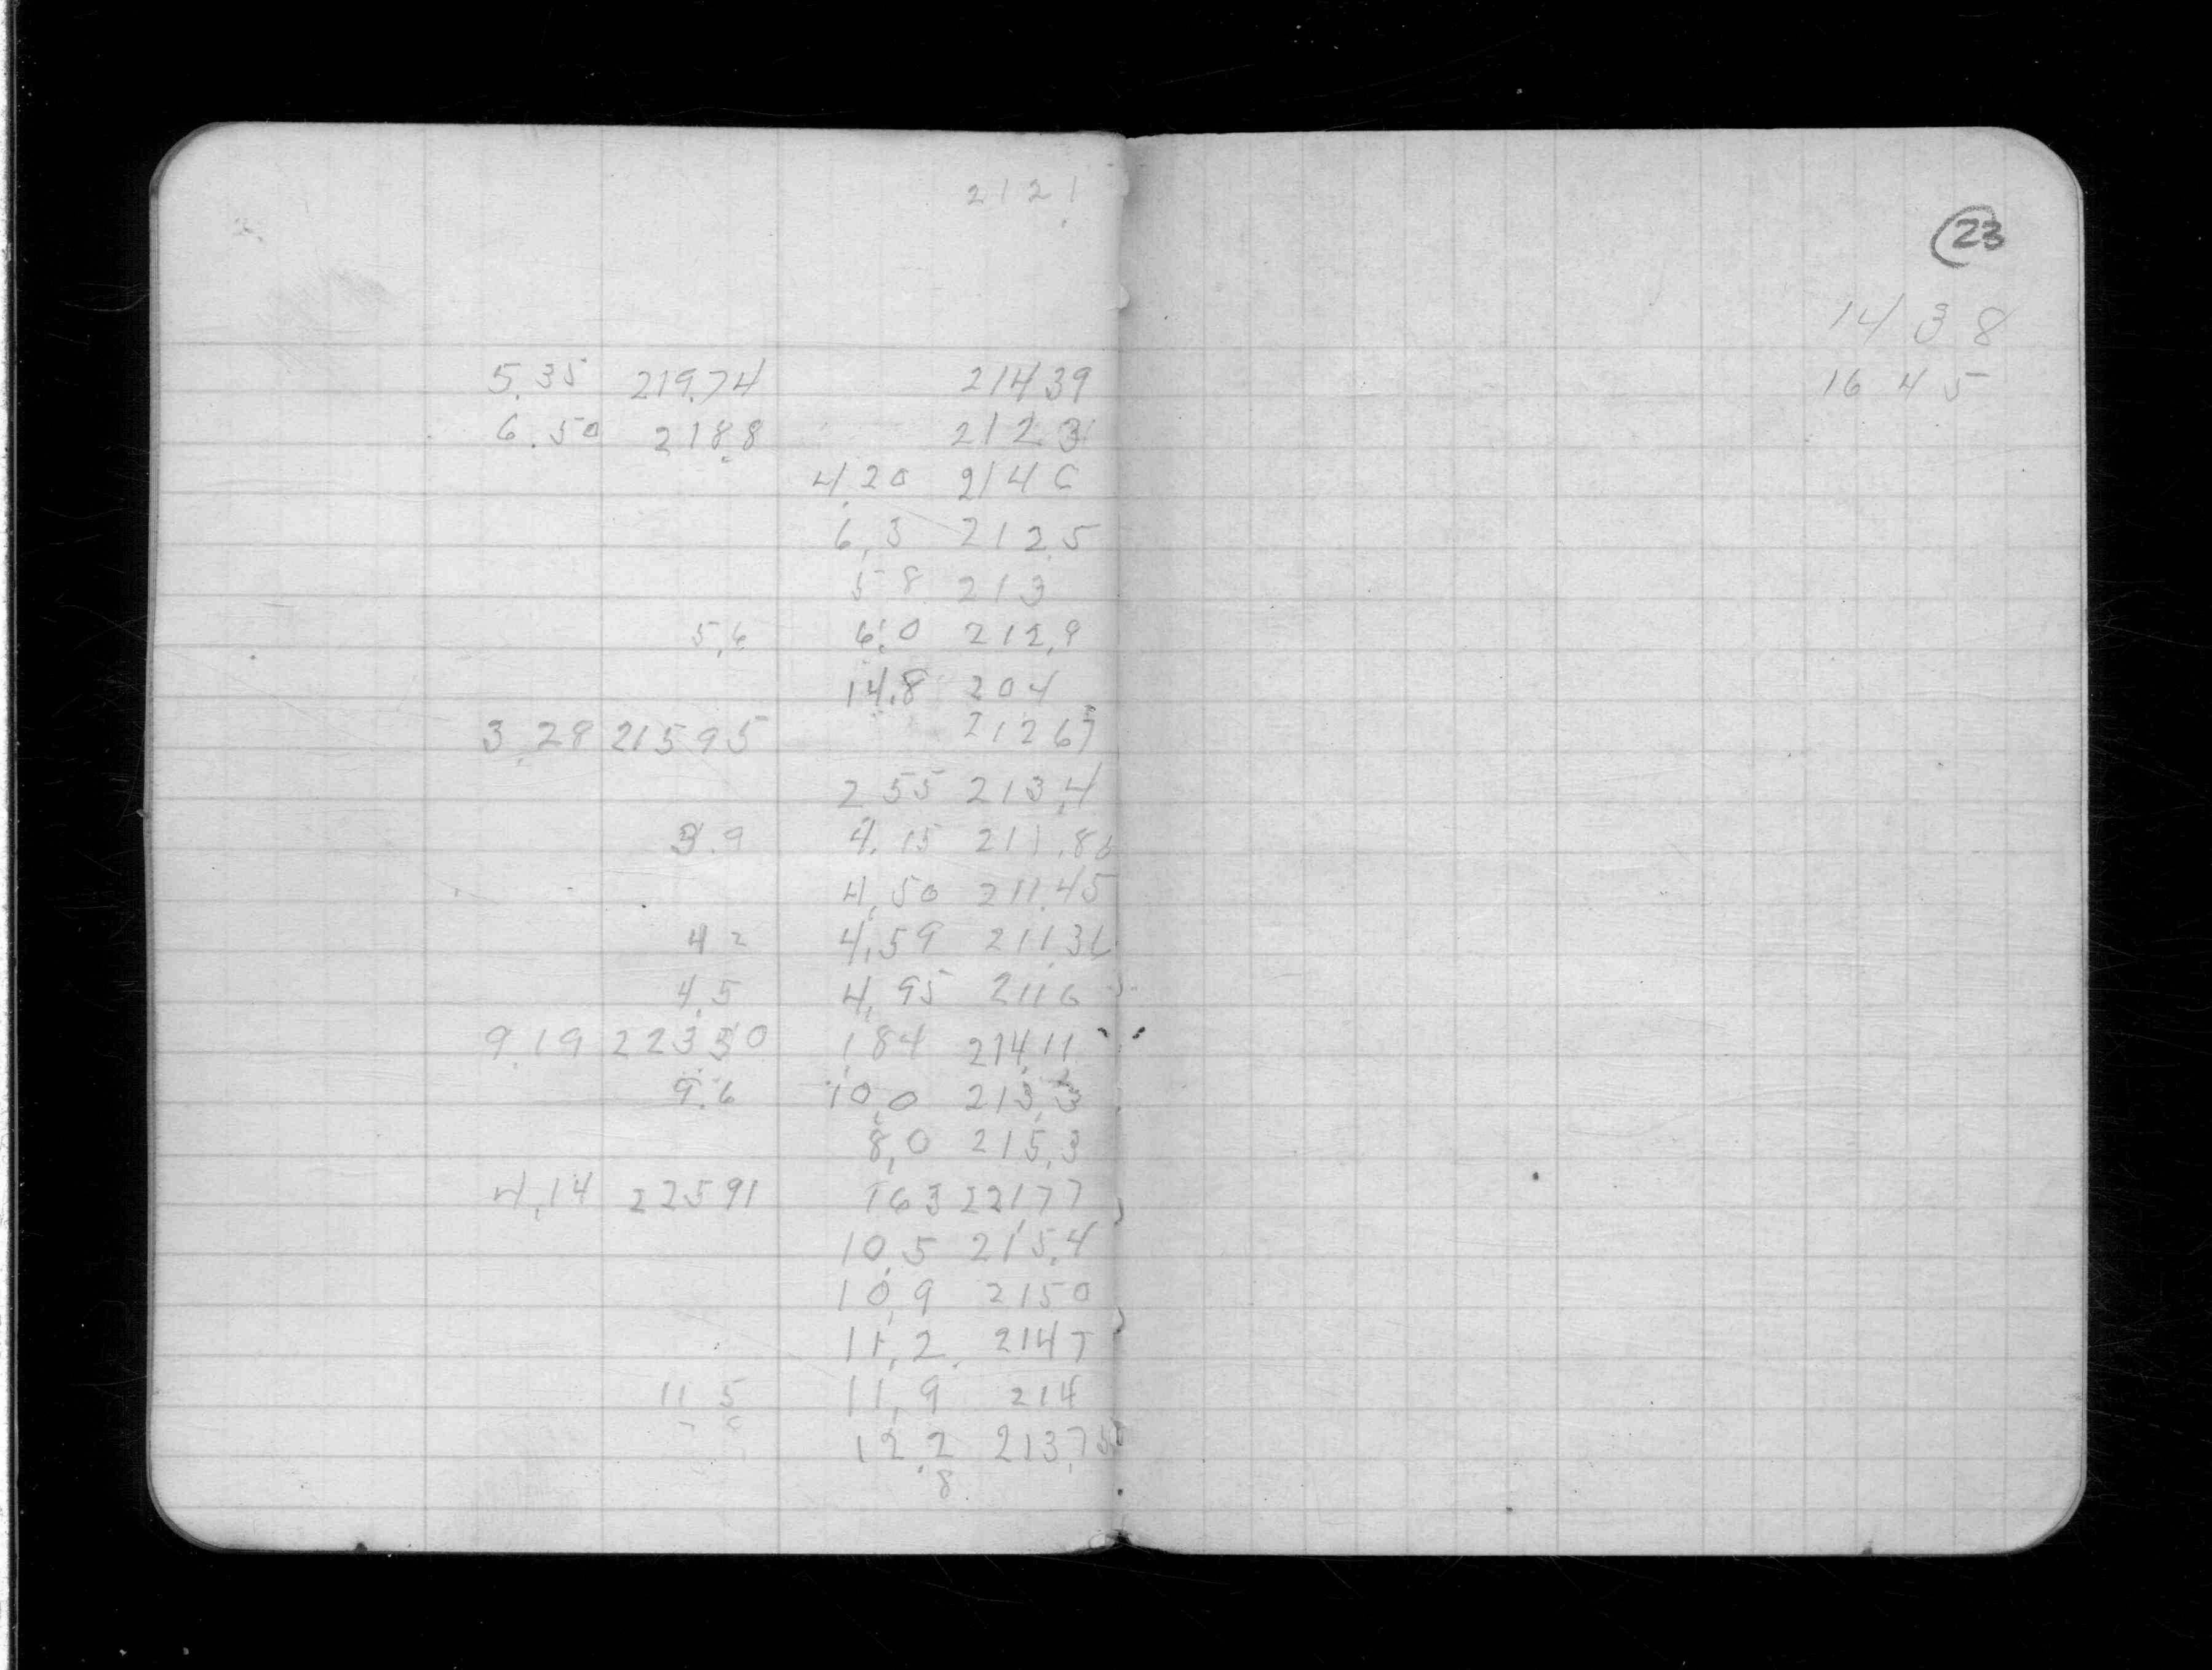 212.1
5.35 219.74 21439
6.50 218.8 2123
4.20 2140
6.3 212.5
5 8 213
5.6 6.0 212.9
14.8 204
3.28 21595 21267
2 55 213.4
3.9 4.15 211.86
4.50 211.45
4 2 4.59 211.36
4.5 4.95 2116
9.19 223.50 1.84 214.11
9.6 10.0 213.3
8.0 215.3
4.14 22591 163 22177
10.5 215.4
10.9 2150
11.2 2147
11 5 11.9 214
12.2 213.7
8
23
14 3 8
16 4 5